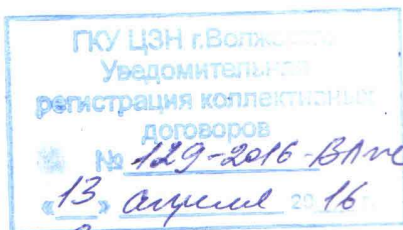 ГКУ ЦЗН г.Волжского
Уведомительная
регистрация коллективных
договоров
№ 129-2016-ВЛж
«13» апреля 2016